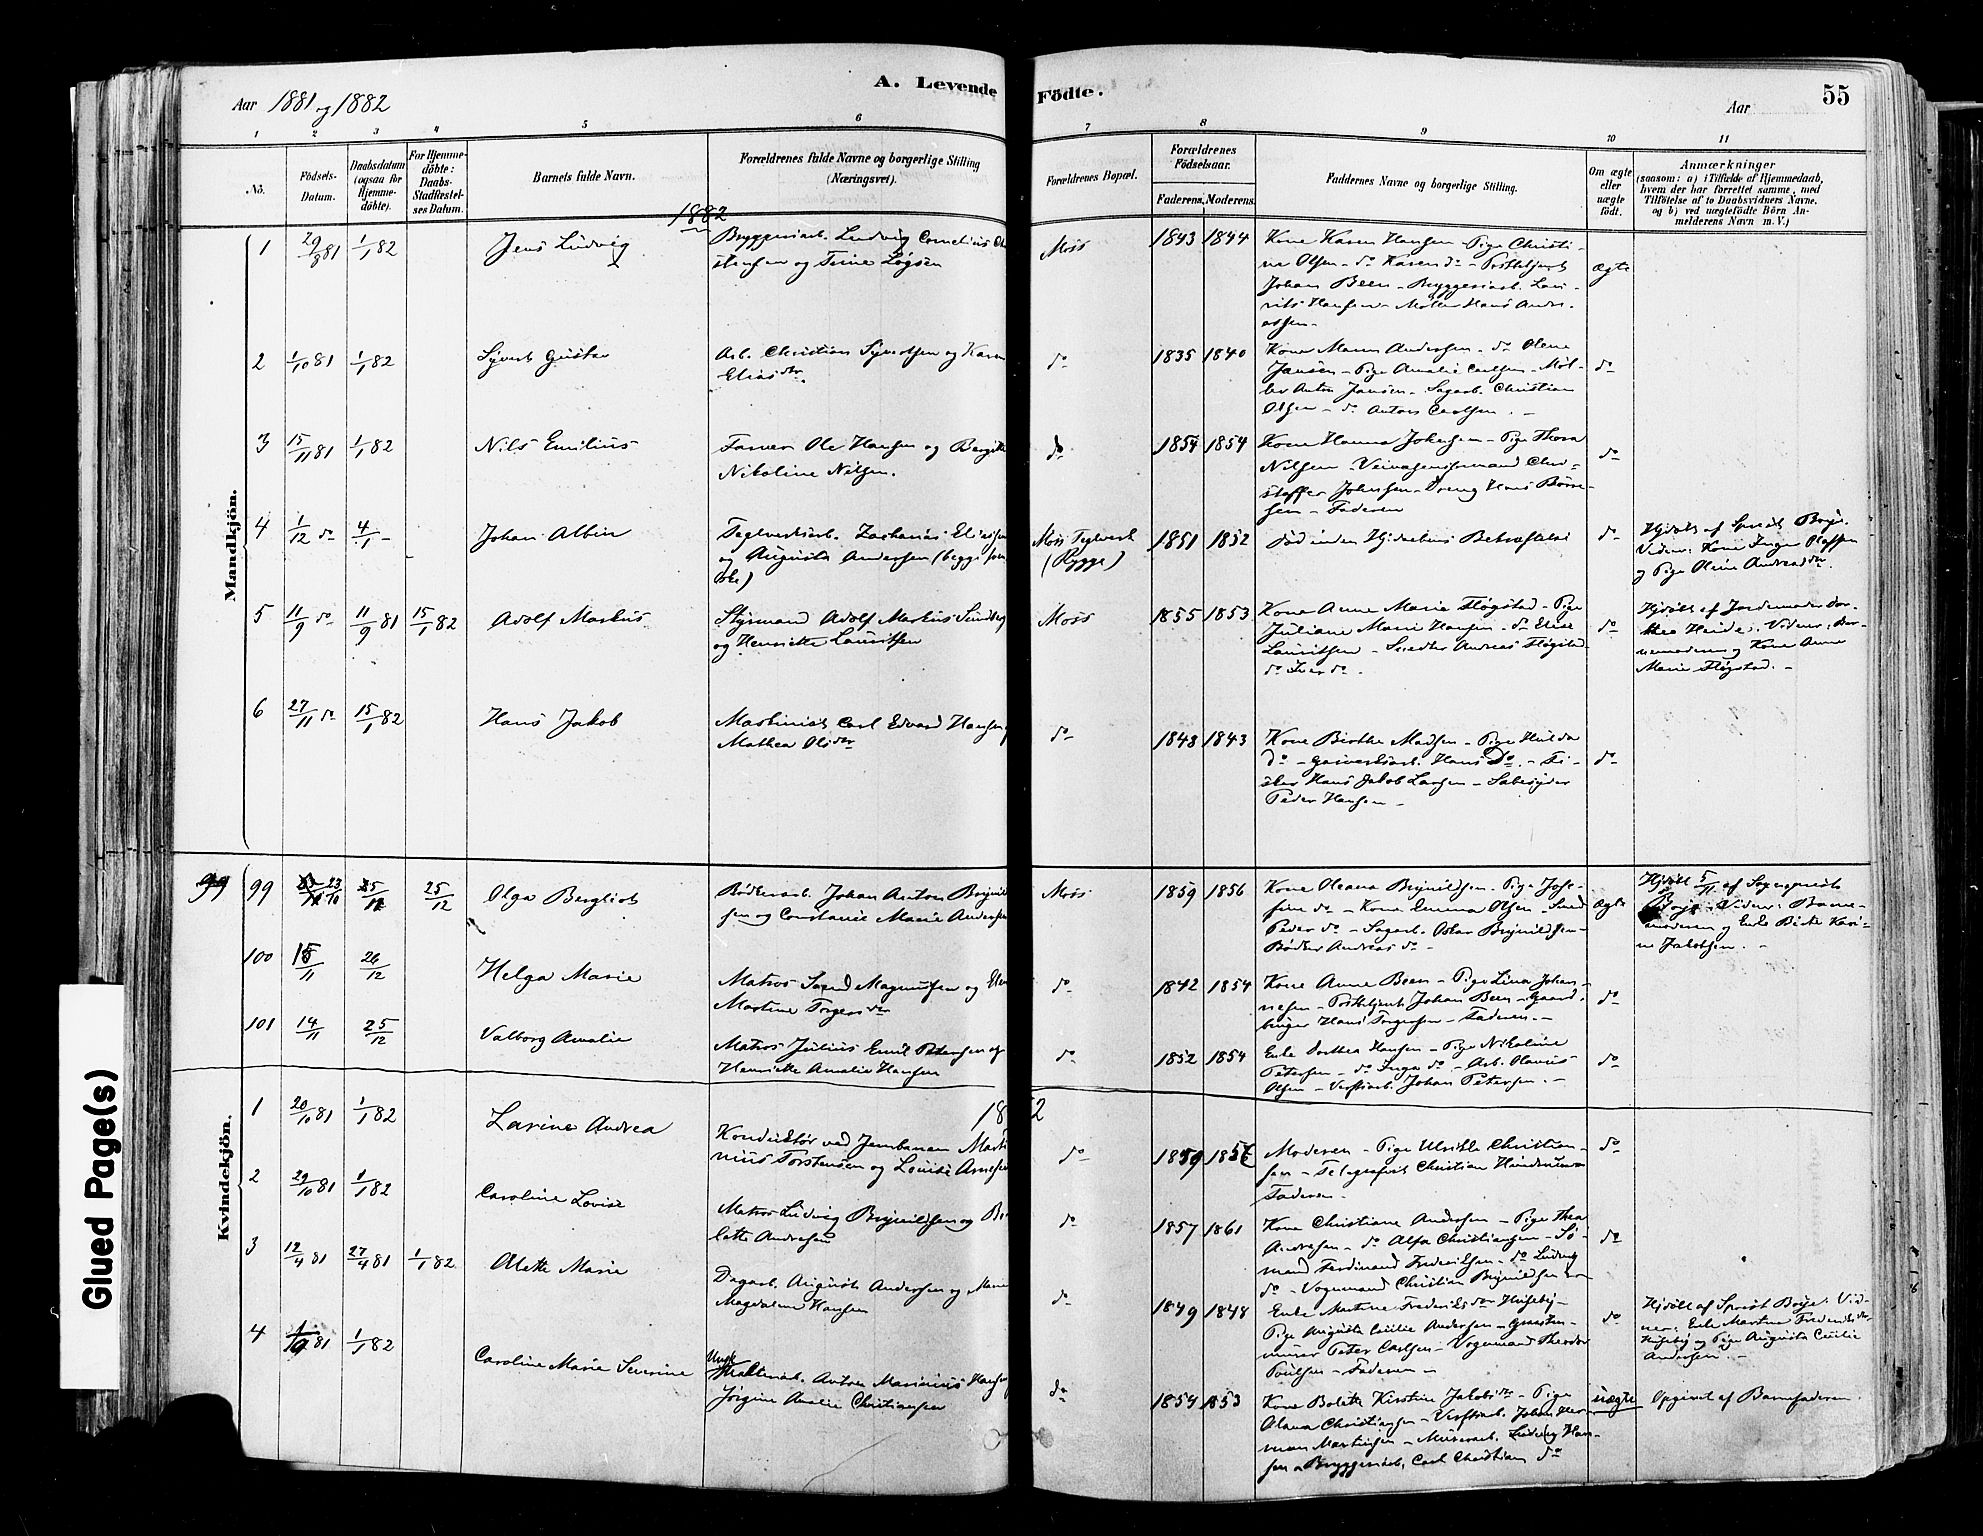 Aar 1881 og 1882
A. Levende Födte.
Aar
55
1 2 3 4 5 6 7 8 9 10 11
No.
Födsels-Datum.
Daabsdatum (ogsaa for Hjemme-döbte).
For Hjemme-döbte: Daabs-Stadfæstel-ses Datum.
Barnets fulde Navn.
Forældrenes fulde Navne og borgerlige Stilling (Næringsvei).
Forældrenes Bopæl.
Forældrenes Födselsaar.
Faderens. Moderens.
Faddernes Navne og borgerlige Stilling.
Om ægte eller uægte födt.
Anmærkninger
(saasom: a) i Tilfælde af Hjemmedaab,
hvem der har forrettet samme, med
Tilföielse af to Daabsvidners Navne,
og b) ved uægtefödte Börn An-
melderens Navn m. V.)
1882
Mandkjön.
1 29/8 81 1/1 82 Jens Ludvig
Bryggeriarb. Ludvig Cornelius
stensen og
Moss 1843 1844
Kone Karen Hansen – Pige Christi-
ne Olsen – do Karen do – Postbetjent
Johan Been – Bryggeriarb. Lau-
rits Hansen – Møller Hans Andre-
assen –
ægte
2 1/10 81 1/1 82 Syvert Gustav
Arb. Christian Syvertsen og Karen
Eliasdtr.
do 1835 1840
Kone Maren Andersen – do Olene
Jansen – Pige Amalie Carlsen – Møl-
ler Anton Jansen – Sagarb. Christian
Olsen – do Anton Carlsen. –
do
3 15/11 81 1/1 82 Nils Emilius
Farver Ole Hansen og
Nikoline Nilsen.
do 1854 1854
Kone Hanna Johnsen – Pige Thora
Nilsen – Chri-
stoffer Johnsen – Dreng Hans Børre-
sen – Faderen
do
4 1/12 do 4/1 – Johan Albin
Teglverksarb. Zacharias Eliassen
og Augusta Andersen (begge sven-
ske)
Moss Teglverk
(Rygge)
1851 1852
død inden Kirkelig Bekræftelse
do
Hjdøbt af Sprest Boye.
Vidner: Kone Inger Olassen
og Pige Oline Andreasdtr.
5 11/9 do 11/9 81 15/1 82 Adolf Markus
Styrmand Adolf Markus Sundberg
og Henriette Lauritsen
Moss 1855 1853
Kone Anne Marie Fløgstad – Pige
Juliane Marie Hansen – do Elise
Lauritsen – Snedker Andreas Fløgstad
do Iver do. –
do
Hjdøbt af Jordemoder Dor-
thea Heide. Vidner: Bar-
nemoderen og Kone Anne
Marie Fløgstad. –
6 27/11 do 15/1 82 Hans Jakob
Maskinist Carl Edvard Hansen
Mathea Olsdtr
do 1843 1843
Kone Birthe Madsen – Pige Hulda
do – Gasverksarb. Hans do. – Fi-
sker Hans Jakob Larsen – Sæbesyder
Peder Hansen –
do
Kvindekjön.
99 99 23/10 25/12 25/12 Olga Bergliot
Bødkerarb. Johan Anton Brynild-
sen og Constance Marie Andersen
Moss 1859 1856
Kone Oleana Brynildsen. Pige Jose-
fine do – Kone Emma Olsen – Smed
Peder do – Sagarb. Oskar Brynildsen –
Bødker Andreas do –
ægte
Hjdöbt 5/11 af Sogneprest
Boye. Vidner: Barne-
moderen og Enke Birte Kari-
ne Jakobsen. –
100 15/11 26/12 Helga Marie
Matros Magnussen og
Martine Torgersdtr
do 1842 1854
Kone Anne Been – Pige Lina Johan-
nesen – Postbetjent Johan Been – Gaard-
bruger Hans Torgersen – Faderen. –
do
101 14/11 25/12 Valborg Amalie
Matros Julius Emil Petersen og
Henriette Amalie Hansen
do 1852 1854
Enke Dorthea Hansen – Pige Nikoline
Petersen – do Inga do – Arb. Olavus
Olsen – Verftsarb. Johan Petersen. –
do
1882
1 20/10 81 1/1 82 Larine Andrea
Konduktør ved Jernbanen Marti-
nius Torstensen og Lovise Arnesen
do 1859
Moderen – Pige Ulrikke Christian-
sen – Telegrafist Christian
Faderen –
do
2 29/10 81 1/1 82 Caroline Lovise
Matros Ludvig Brynildsen og
lette Andresen
do 1857 1861
Kone Christiane Andersen – Pige Thea
Andresen – do Alfa Christiansen – Sø-
mand Ferdinand Fredriksen – do Ludvig
do – Vognmand Christian Brynildsen
do
3 12/4 81 27/4 81 1/1 82 Alette Marie
Dagarb. August Andersen og Maren
Magdalene Hansen
do 1849 1848
Enke Martine Frederiksdtr Huseby –
Pige Augusta Cecilie Andersen –
murer Peter Carlsen – Vognmand Theodor
Poulsen – Faderen –
do
Hjdöbt af Sprest Boye. Vid-
ner: Enke Martine Frederiksdtr
Huseby og Pige Augusta Cecilie
Andersen. –
4 81 1/1 82 Caroline Marie Severine
Ungk.
Anton Marinius Hansen
Jørgine Amalie Christiansen
do 1854 1853
Kone Bolette Kirstine Jakobsdtr – Pige
Olava Christiansen – Verftsarb. Johan Her-
man Martinsen – Murerarb. Ludvig Han-
sen – Bryggeriarb. Carl Christian do
uægte
Opgivet af Barnefaderen
Glued Page(s)